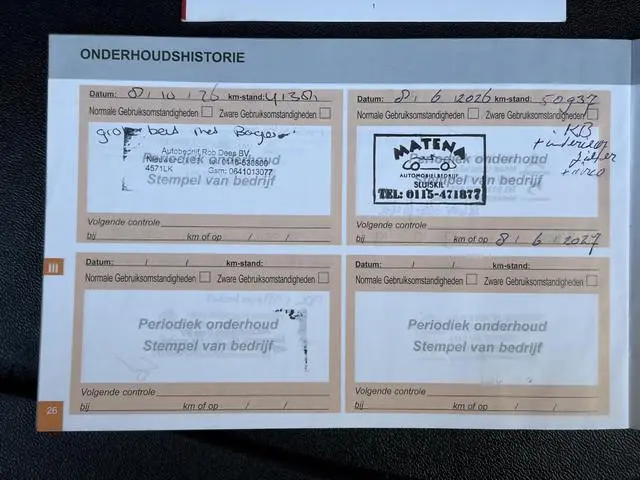 1
ONDERHOUDSHISTORIE
Datum: 8 / 10 / 26 km-stand:
Normale Gebruiksomstandigheden Zware Gebruiksomstandigheden
beurt met
Autobedrijf Rob Dees BV.
4571LK Gsm: 0641013077
Periodiek onderhoud
Stempel van bedrijf
Volgende controle
bij km of op / /
Datum: 8 / 6 / 2026 km-stand: 50937
Normale Gebruiksomstandigheden Zware Gebruiksomstandigheden
KB
MATENA
AUTOMOBIELBEDRIJF
SLUISKIL
TEL: 0115-471877
Periodiek onderhoud
Stempel van bedrijf
Volgende controle
bij km of op 8 / 6 / 2027
III
Datum: / / km-stand:
Normale Gebruiksomstandigheden Zware Gebruiksomstandigheden
Periodiek onderhoud
Stempel van bedrijf
Volgende controle
bij km of op / /
Datum: / / km-stand:
Normale Gebruiksomstandigheden Zware Gebruiksomstandigheden
Periodiek onderhoud
Stempel van bedrijf
Volgende controle
bij km of op / /
26